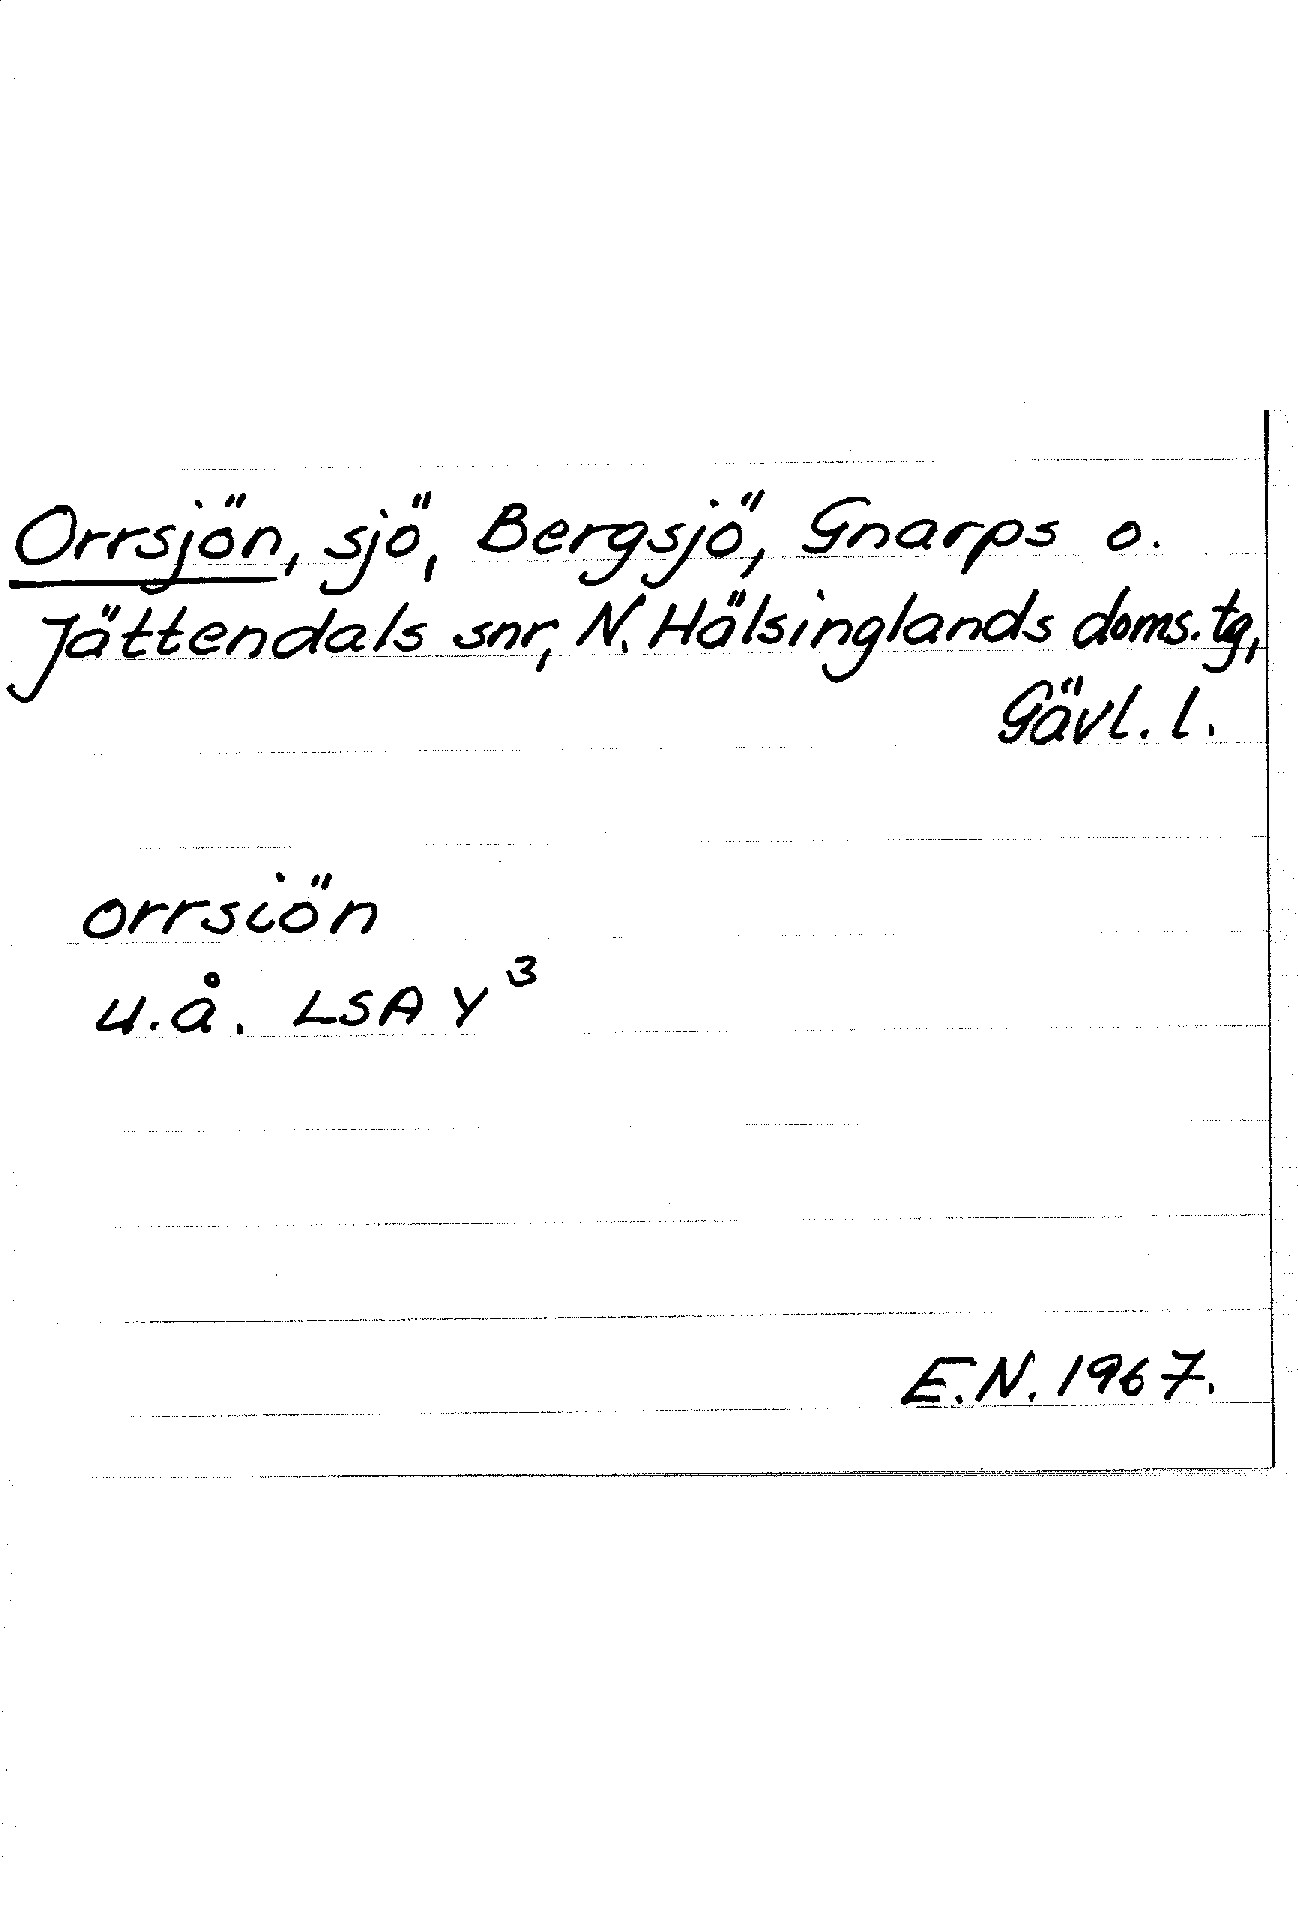 Orrsjön, sjö, Bergsjö, Gnarps o.
Jättendals snr, N. Hälsinglands doms.tg,
Gävl. l.
orrsiön
u.å. LSA Y³
E.N. 1967.